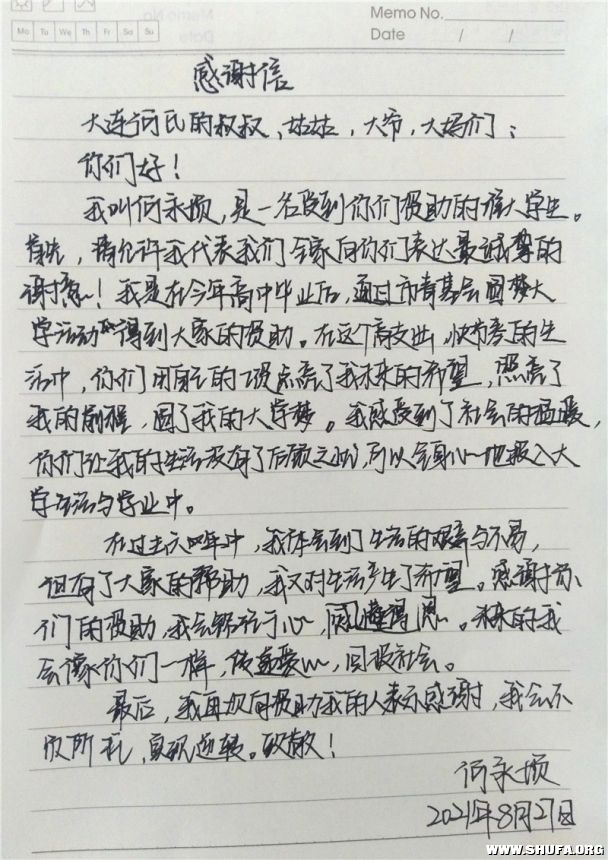 Memo No.
Date / /
Mo Tu We Th Fr Sa Su
感谢信
大连何氏的叔叔、姑姑，大爷，大妈们：
你们好！
我叫何永顼，是一名受到你们援助的准大学生。
首先，请允许我代表我们全家向你们表达最诚挚的
谢意！我是在今年高中毕业后，通过市青基会圆梦大
学活动得到大家的援助。在这个高支出，快节奏的生
活中，你们用自己的 点亮了我未来的希望，照亮了
我的前程，圆了我的大学梦。我感受到了社会的温暖，
你们让我的生活没有了后顾之忧，可以全身心地投入大
学生活与学业中。
在过去六四年中，我体会到了生活的艰辛与不易，
但有了大家的帮助，我又对生活产生了希望。感谢你
们的援助，我会铭记于心，懂得 恩。未来的我
会像你们一样，传递爱心，回报社会。
最后，我再次向援助我的人表示感谢，我会不
负所托，实现逆转。致敬！
何永顼
2021年8月27日
WWW.SHUFA.ORG